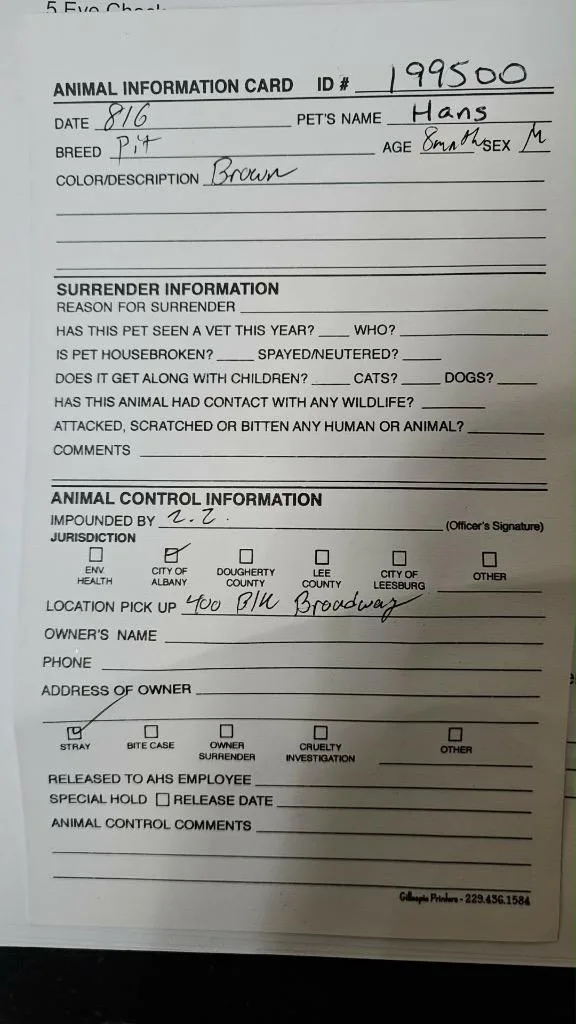 5 Eye Check
ANIMAL INFORMATION CARD ID # 199500
DATE 8/6 PET'S NAME Hans
BREED Pit AGE 8mnth SEX M
COLOR/DESCRIPTION Brown
SURRENDER INFORMATION
REASON FOR SURRENDER
HAS THIS PET SEEN A VET THIS YEAR? WHO?
IS PET HOUSEBROKEN? SPAYED/NEUTERED?
DOES IT GET ALONG WITH CHILDREN? CATS? DOGS?
HAS THIS ANIMAL HAD CONTACT WITH ANY WILDLIFE?
ATTACKED, SCRATCHED OR BITTEN ANY HUMAN OR ANIMAL?
COMMENTS
ANIMAL CONTROL INFORMATION
IMPOUNDED BY (Officer's Signature)
JURISDICTION
ENV. HEALTH CITY OF ALBANY DOUGHERTY COUNTY LEE COUNTY CITY OF LEESBURG OTHER
LOCATION PICK UP 400 Blk Broadway
OWNER'S NAME
PHONE
ADDRESS OF OWNER
STRAY BITE CASE OWNER SURRENDER CRUELTY INVESTIGATION OTHER
RELEASED TO AHS EMPLOYEE
SPECIAL HOLD RELEASE DATE
ANIMAL CONTROL COMMENTS
Gillespie Printers - 229.436.1584